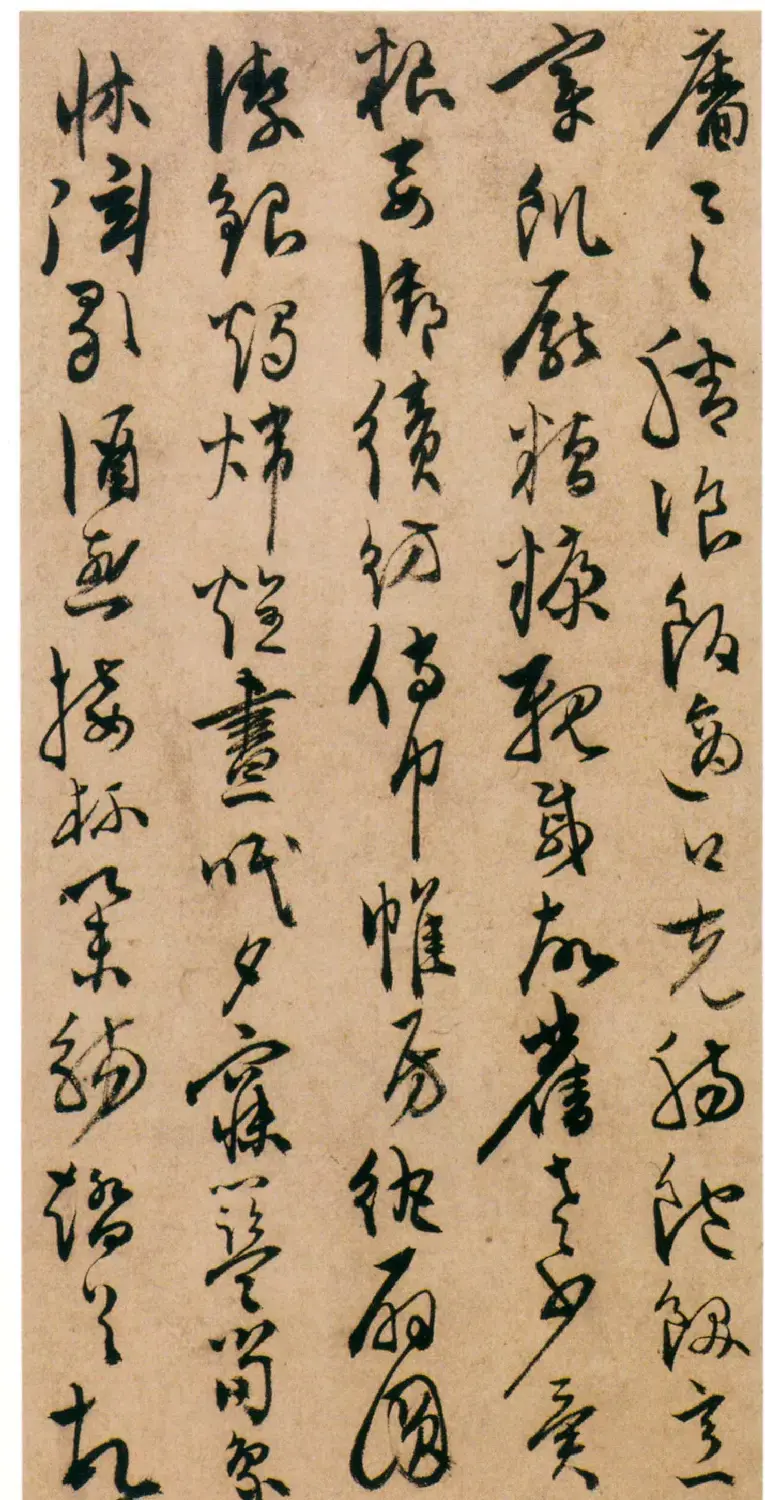 墻具膳飡飯適口充腸飽飫烹
宰飢厭糟糠親戚故舊老少異
粮妾御績紡侍巾帷房紈扇圓
潔銀燭煒煌晝眠夕寐籃笋象
床弦歌酒讌接杯舉觴矯手頓